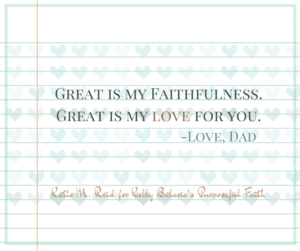 Great is my Faithfulness.
Great is my love for you.
-Love, Dad
Katie M. Reid for Kelly Balarie's Purposeful Faith